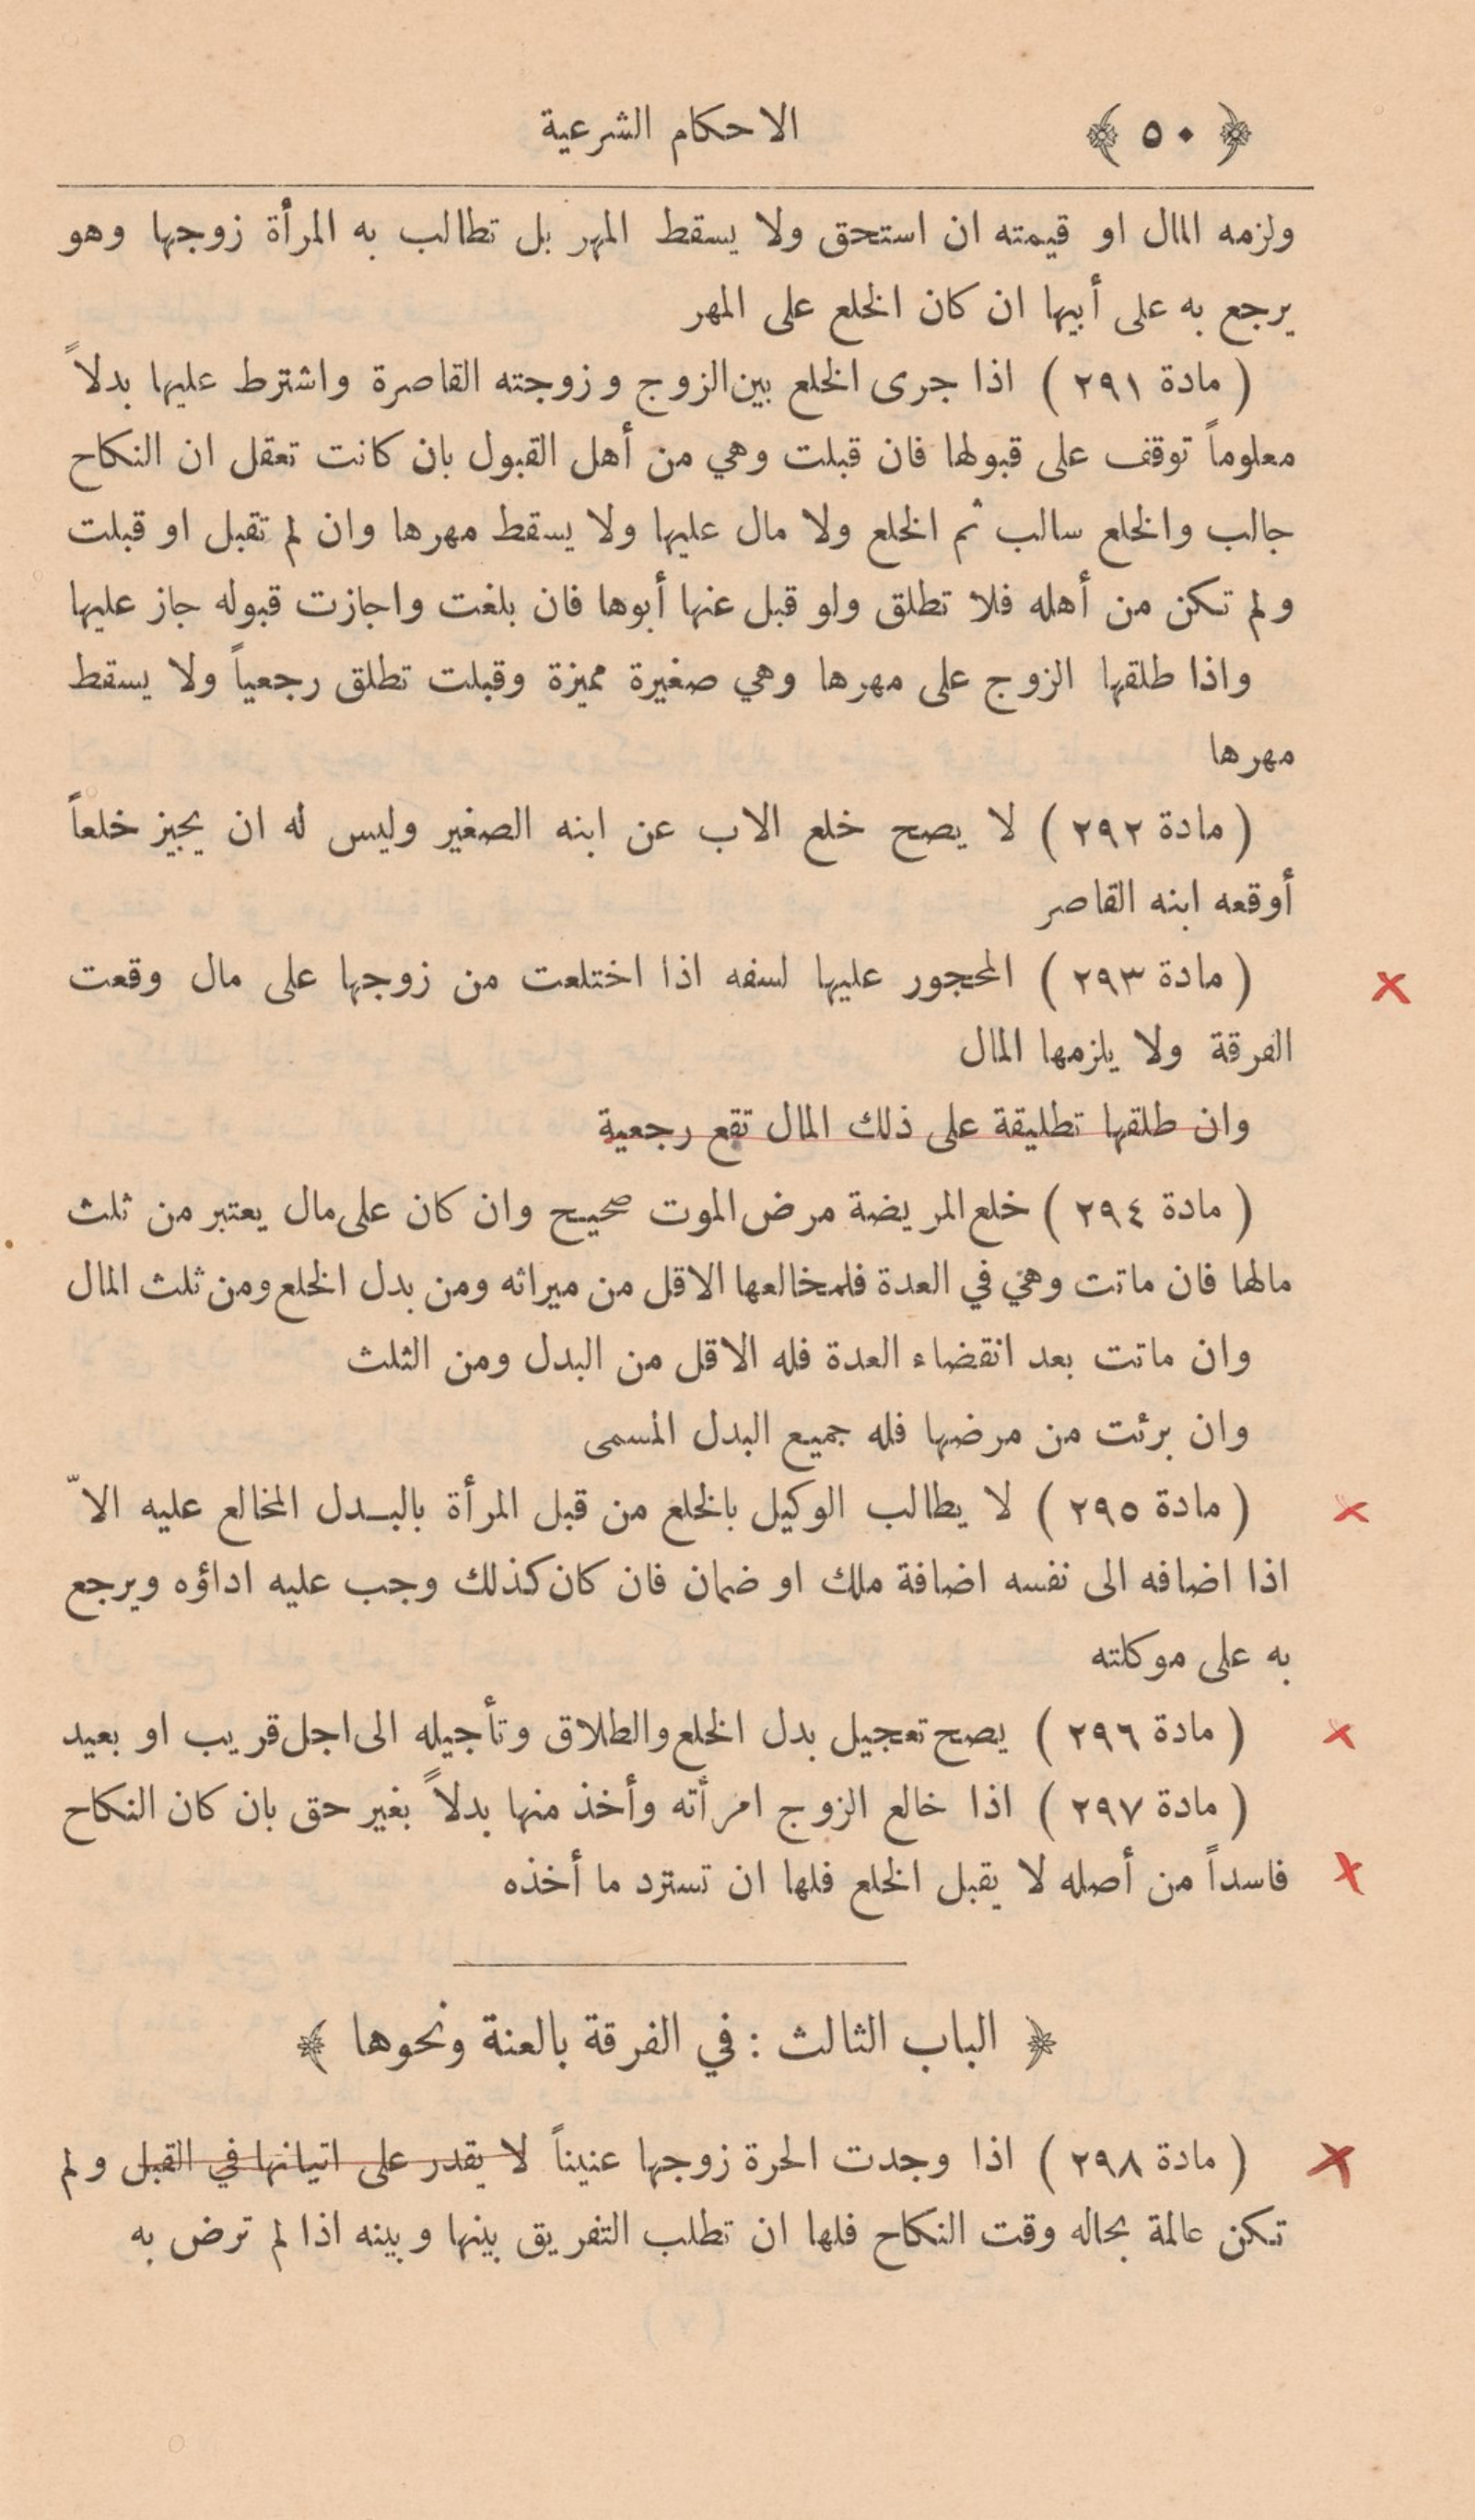 ﴿ ٥٠ ﴾ الاحكام الشرعية
ولزمه المال او قيمته ان استحق ولا يسقط المهر بل تطالب به المرأة زوجها وهو
يرجع به على أبيها ان كان الخلع على المهر
( مادة ٢٩١ ) اذا جرى الخلع بين الزوج وزوجته القاصرة واشترط عليها بدلاً
معلوماً توقف على قبولها فان قبلت وهي من أهل القبول بان كانت تعقل ان النكاح
جالب والخلع سالب تم الخلع ولا مال عليها ولا يسقط مهرها وان لم تقبل او قبلت
ولم تكن من أهله فلا تطلق ولو قبل عنها أبوها فان بلغت واجازت قبوله جاز عليها
واذا طلقها الزوج على مهرها وهي صغيرة مميزة وقبلت تطلق رجعياً ولا يسقط
مهرها
( مادة ٢٩٢ ) لا يصح خلع الاب عن ابنه الصغير وليس له ان يجيز خلعاً
أوقعه ابنه القاصر
( مادة ٢٩٣ ) المحجور عليها لسفه اذا اختلعت من زوجها على مال وقعت
الفرقة ولا يلزمها المال
وان طلقها تطليقة على ذلك المال تقع رجعية
( مادة ٢٩٤ ) خلع المريضة مرض الموت صحيح وان كان على مال يعتبر من ثلث
مالها فان ماتت وهي في العدة فلمخالعها الاقل من ميراثه ومن بدل الخلع ومن ثلث المال
وان ماتت بعد انقضاء العدة فله الاقل من البدل ومن الثلث
وان برئت من مرضها فله جميع البدل المسمى
( مادة ٢٩٥ ) لا يطالب الوكيل بالخلع من قبل المرأة بالبـدل المخالع عليه الاّ
اذا اضافه الى نفسه اضافة ملك او ضمان فان كان كذلك وجب عليه اداؤه ويرجع
به على موكلته
( مادة ٢٩٦ ) يصح تعجيل بدل الخلع والطلاق وتأجيله الى اجل قريب او بعيد
( مادة ٢٩٧ ) اذا خالع الزوج امرأته وأخذ منها بدلاً بغير حق بان كان النكاح
فاسداً من أصله لا يقبل الخلع فلها ان تسترد ما أخذه
﴿ الباب الثالث : في الفرقة بالعنة ونحوها ﴾
( مادة ٢٩٨ ) اذا وجدت الحرة زوجها عنيناً لا يقدر على اتيانها في القبل ولم
تكن عالمة بحاله وقت النكاح فلها ان تطلب التفريق بينها وبينه اذا لم ترض به